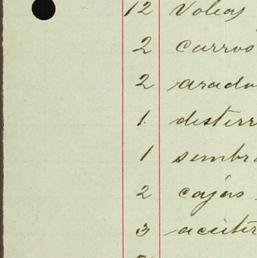 12 Voleas
2 carros
2 arado
1 desterr
1 sembra
2 cajas
3 aceiter